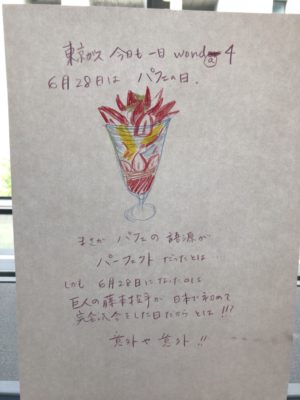 東京ガス 今日も一日 wond@4
6月28日は パフェの日.
まさか パフェの 語源が
パーフェクト だったとは…
しかも 6月28日になったのは
巨人の藤本投手が 日本で初めて
完全試合をした日だから とは!!!
意外や意外!!